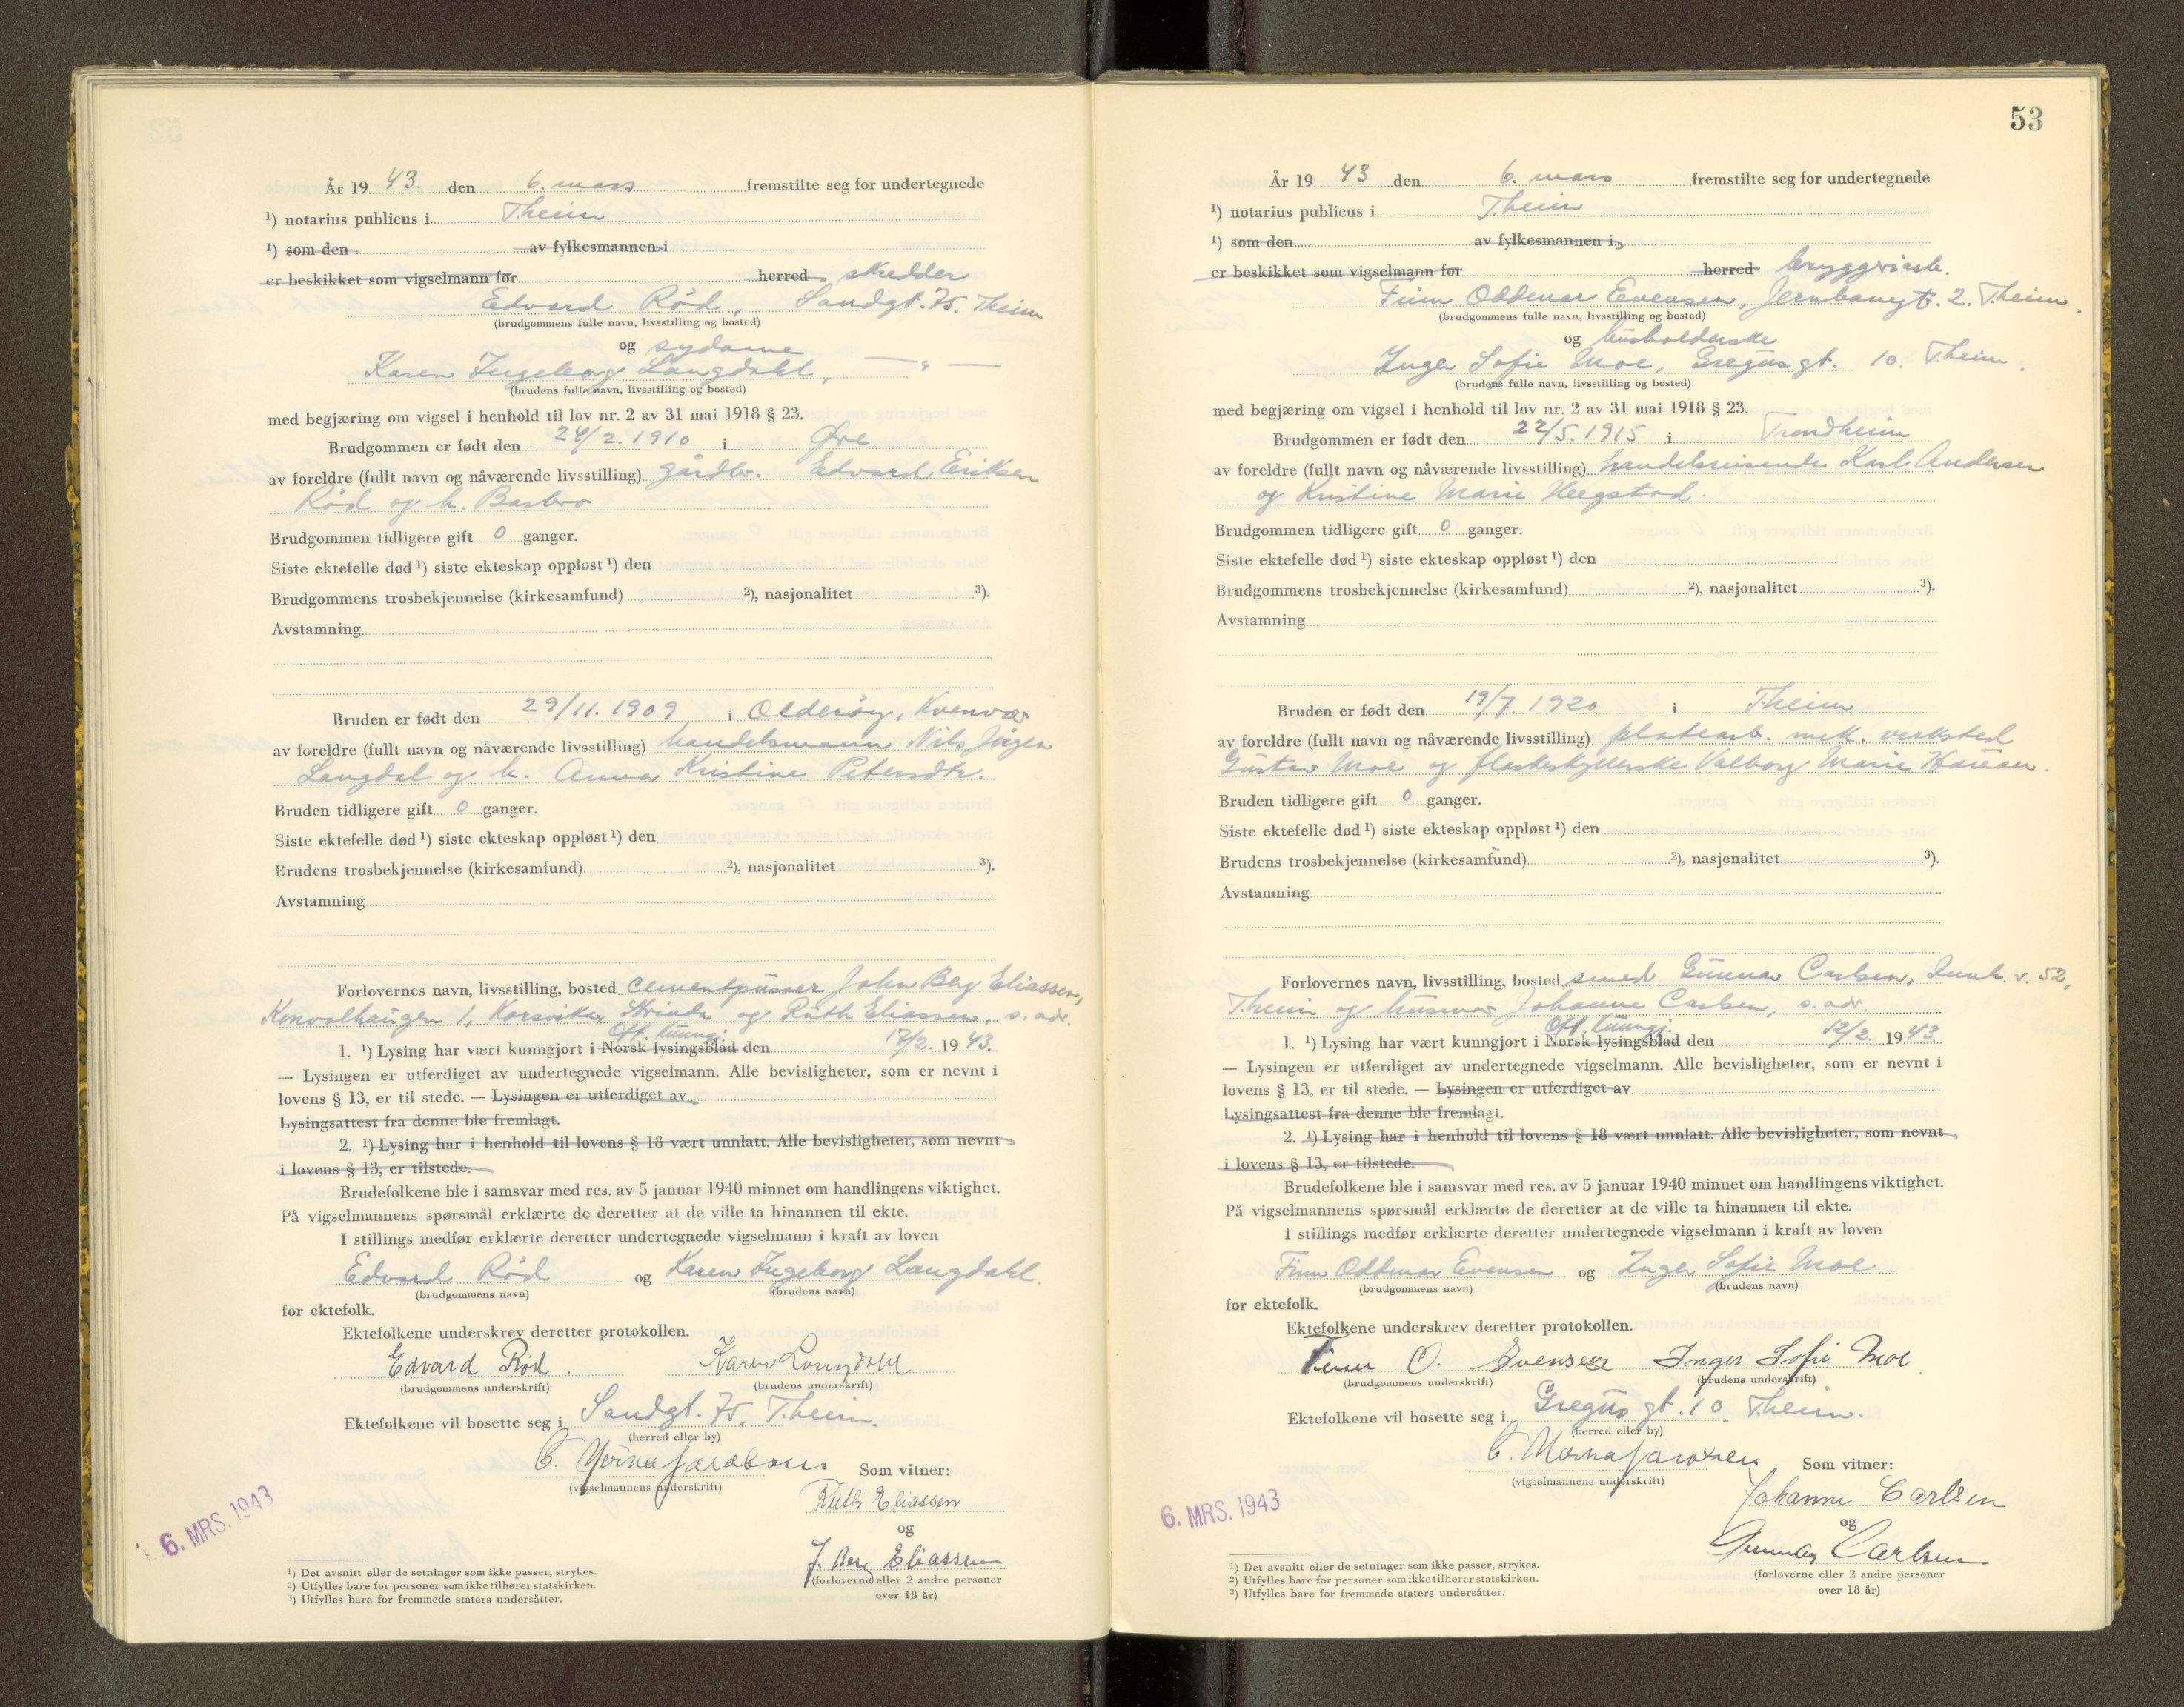 År 19 43. den 6. mars fremstilte seg for undertegnede
¹) notarius publicus i T.heim
¹) som den av fylkesmannen i
er beskikket som vigselmann for herred skredder
Edvard Rød, Sandgt. 75. T.heim
(brudgommens fulle navn, livsstilling og bosted)
og sydame
Karen Ingeborg Langdahl, — " —
(brudens fulle navn, livsstilling og bosted)
med begjæring om vigsel i henhold til lov nr. 2 av 31 mai 1918 § 23.
Brudgommen er født den 24/2. 1910 i Øre
av foreldre (fullt navn og nåværende livsstilling) gårdbr. Edvard Eriksen
Rød og h. Barbro
Brudgommen tidligere gift 0 ganger.
Siste ektefelle død ¹) siste ekteskap oppløst ¹) den
Brudgommens trosbekjennelse (kirkesamfund) ²), nasjonalitet ³).
Avstamning
Bruden er født den 29/11. 1909 i Olderøy, Kvenvær
av foreldre (fullt navn og nåværende livsstilling) handelsmann Nils Jørgen
Langdal og h. Anna Kristine Petersdtr.
Bruden tidligere gift 0 ganger.
Siste ektefelle død ¹) siste ekteskap oppløst ¹) den
Brudens trosbekjennelse (kirkesamfund) ²), nasjonalitet ³).
Avstamning
Forlovernes navn, livsstilling, bosted cementpusser John Berg Eliassen,
Konvalhaugen 1, Korsvika, Strinda og Ruth Eliassen, s. adr.
Off. kunngj.
1. ¹) Lysing har vært kunngjort i Norsk lysingsblad den 17/2. 19 43.
— Lysingen er utferdiget av undertegnede vigselmann. Alle bevisligheter, som er nevnt i
lovens § 13, er til stede. — Lysingen er utferdiget av
Lysingsattest fra denne ble fremlagt.
2. ¹) Lysing har i henhold til lovens § 18 vært unnlatt. Alle bevisligheter, som nevnt
i lovens § 13, er tilstede.
Brudefolkene ble i samsvar med res. av 5 januar 1940 minnet om handlingens viktighet.
På vigselmannens spørsmål erklærte de deretter at de ville ta hinannen til ekte.
I stillings medfør erklærte deretter undertegnede vigselmann i kraft av loven
Edvard Rød og Karen Ingeborg Langdahl.
(brudgommens navn) (brudens navn)
for ektefolk.
Ektefolkene underskrev deretter protokollen.
Edvard Rød. Karen Langdahl
(brudgommens underskrift) (brudens underskrift)
Ektefolkene vil bosette seg i Sandgt. 75. T.heim.
(herred eller by)
Som vitner:
(vigselmannens underskrift)
Ruth Eliassen
og
J. Berg Eliassen
(forloverne eller 2 andre personer
over 18 år)
6. MRS. 1943
¹) Det avsnitt eller de setninger som ikke passer, strykes.
²) Utfylles bare for personer som ikke tilhører statskirken.
³) Utfylles bare for fremmede staters undersåtter.
53
År 19 43 den 6. mars fremstilte seg for undertegnede
¹) notarius publicus i T.heim
¹) som den av fylkesmannen i
er beskikket som vigselmann for herred bryggriarb.
Finn Oddmar Evensen, Jernbanegt. 2. T.heim.
(brudgommens fulle navn, livsstilling og bosted)
og husholderske
Inger Sofie Moe, Gregus gt. 10. T.heim.
(brudens fulle navn, livsstilling og bosted)
med begjæring om vigsel i henhold til lov nr. 2 av 31 mai 1918 § 23.
Brudgommen er født den 22/5. 1915 i Trondheim
av foreldre (fullt navn og nåværende livsstilling) handelsreisende Karl Andersen
og Kristine Marie Hegstad.
Brudgommen tidligere gift 0 ganger.
Siste ektefelle død ¹) siste ekteskap oppløst ¹) den
Brudgommens trosbekjennelse (kirkesamfund) ²), nasjonalitet ³).
Avstamning
Bruden er født den 19/7. 1920 i T.heim
av foreldre (fullt navn og nåværende livsstilling) platearb. mek. verksted
Gustav Moe og flaskeskyllerske Valborg Marie Hauan.
Bruden tidligere gift 0 ganger.
Siste ektefelle død ¹) siste ekteskap oppløst ¹) den
Brudens trosbekjennelse (kirkesamfund) ²), nasjonalitet ³).
Avstamning
Forlovernes navn, livsstilling, bosted smed Gunnar Carlsen, Innh. v. 52,
T.heim og husmor Johanne Carlsen, s. adr.
Off. kunngj.
1. ¹) Lysing har vært kunngjort i Norsk lysingsblad den 12/2. 19 43.
— Lysingen er utferdiget av undertegnede vigselmann. Alle bevisligheter, som er nevnt i
lovens § 13, er til stede. — Lysingen er utferdiget av
Lysingsattest fra denne ble fremlagt.
2. ¹) Lysing har i henhold til lovens § 18 vært unnlatt. Alle bevisligheter, som nevnt
i lovens § 13, er tilstede.
Brudefolkene ble i samsvar med res. av 5 januar 1940 minnet om handlingens viktighet.
På vigselmannens spørsmål erklærte de deretter at de ville ta hinannen til ekte.
I stillings medfør erklærte deretter undertegnede vigselmann i kraft av loven
Finn Oddmar Evensen og Inger Sofie Moe
(brudgommens navn) (brudens navn)
for ektefolk.
Ektefolkene underskrev deretter protokollen.
Finn O. Evensen Inger Sofie Moe
(brudgommens underskrift) (brudens underskrift)
Ektefolkene vil bosette seg i Gregus gt. 10 T.heim.
(herred eller by)
Som vitner:
(vigselmannens underskrift)
Johanne Carlsen
og
Gunnar Carlsen
(forloverne eller 2 andre personer
over 18 år)
6. MRS. 1943
¹) Det avsnitt eller de setninger som ikke passer, strykes.
²) Utfylles bare for personer som ikke tilhører statskirken.
³) Utfylles bare for fremmede staters undersåtter.